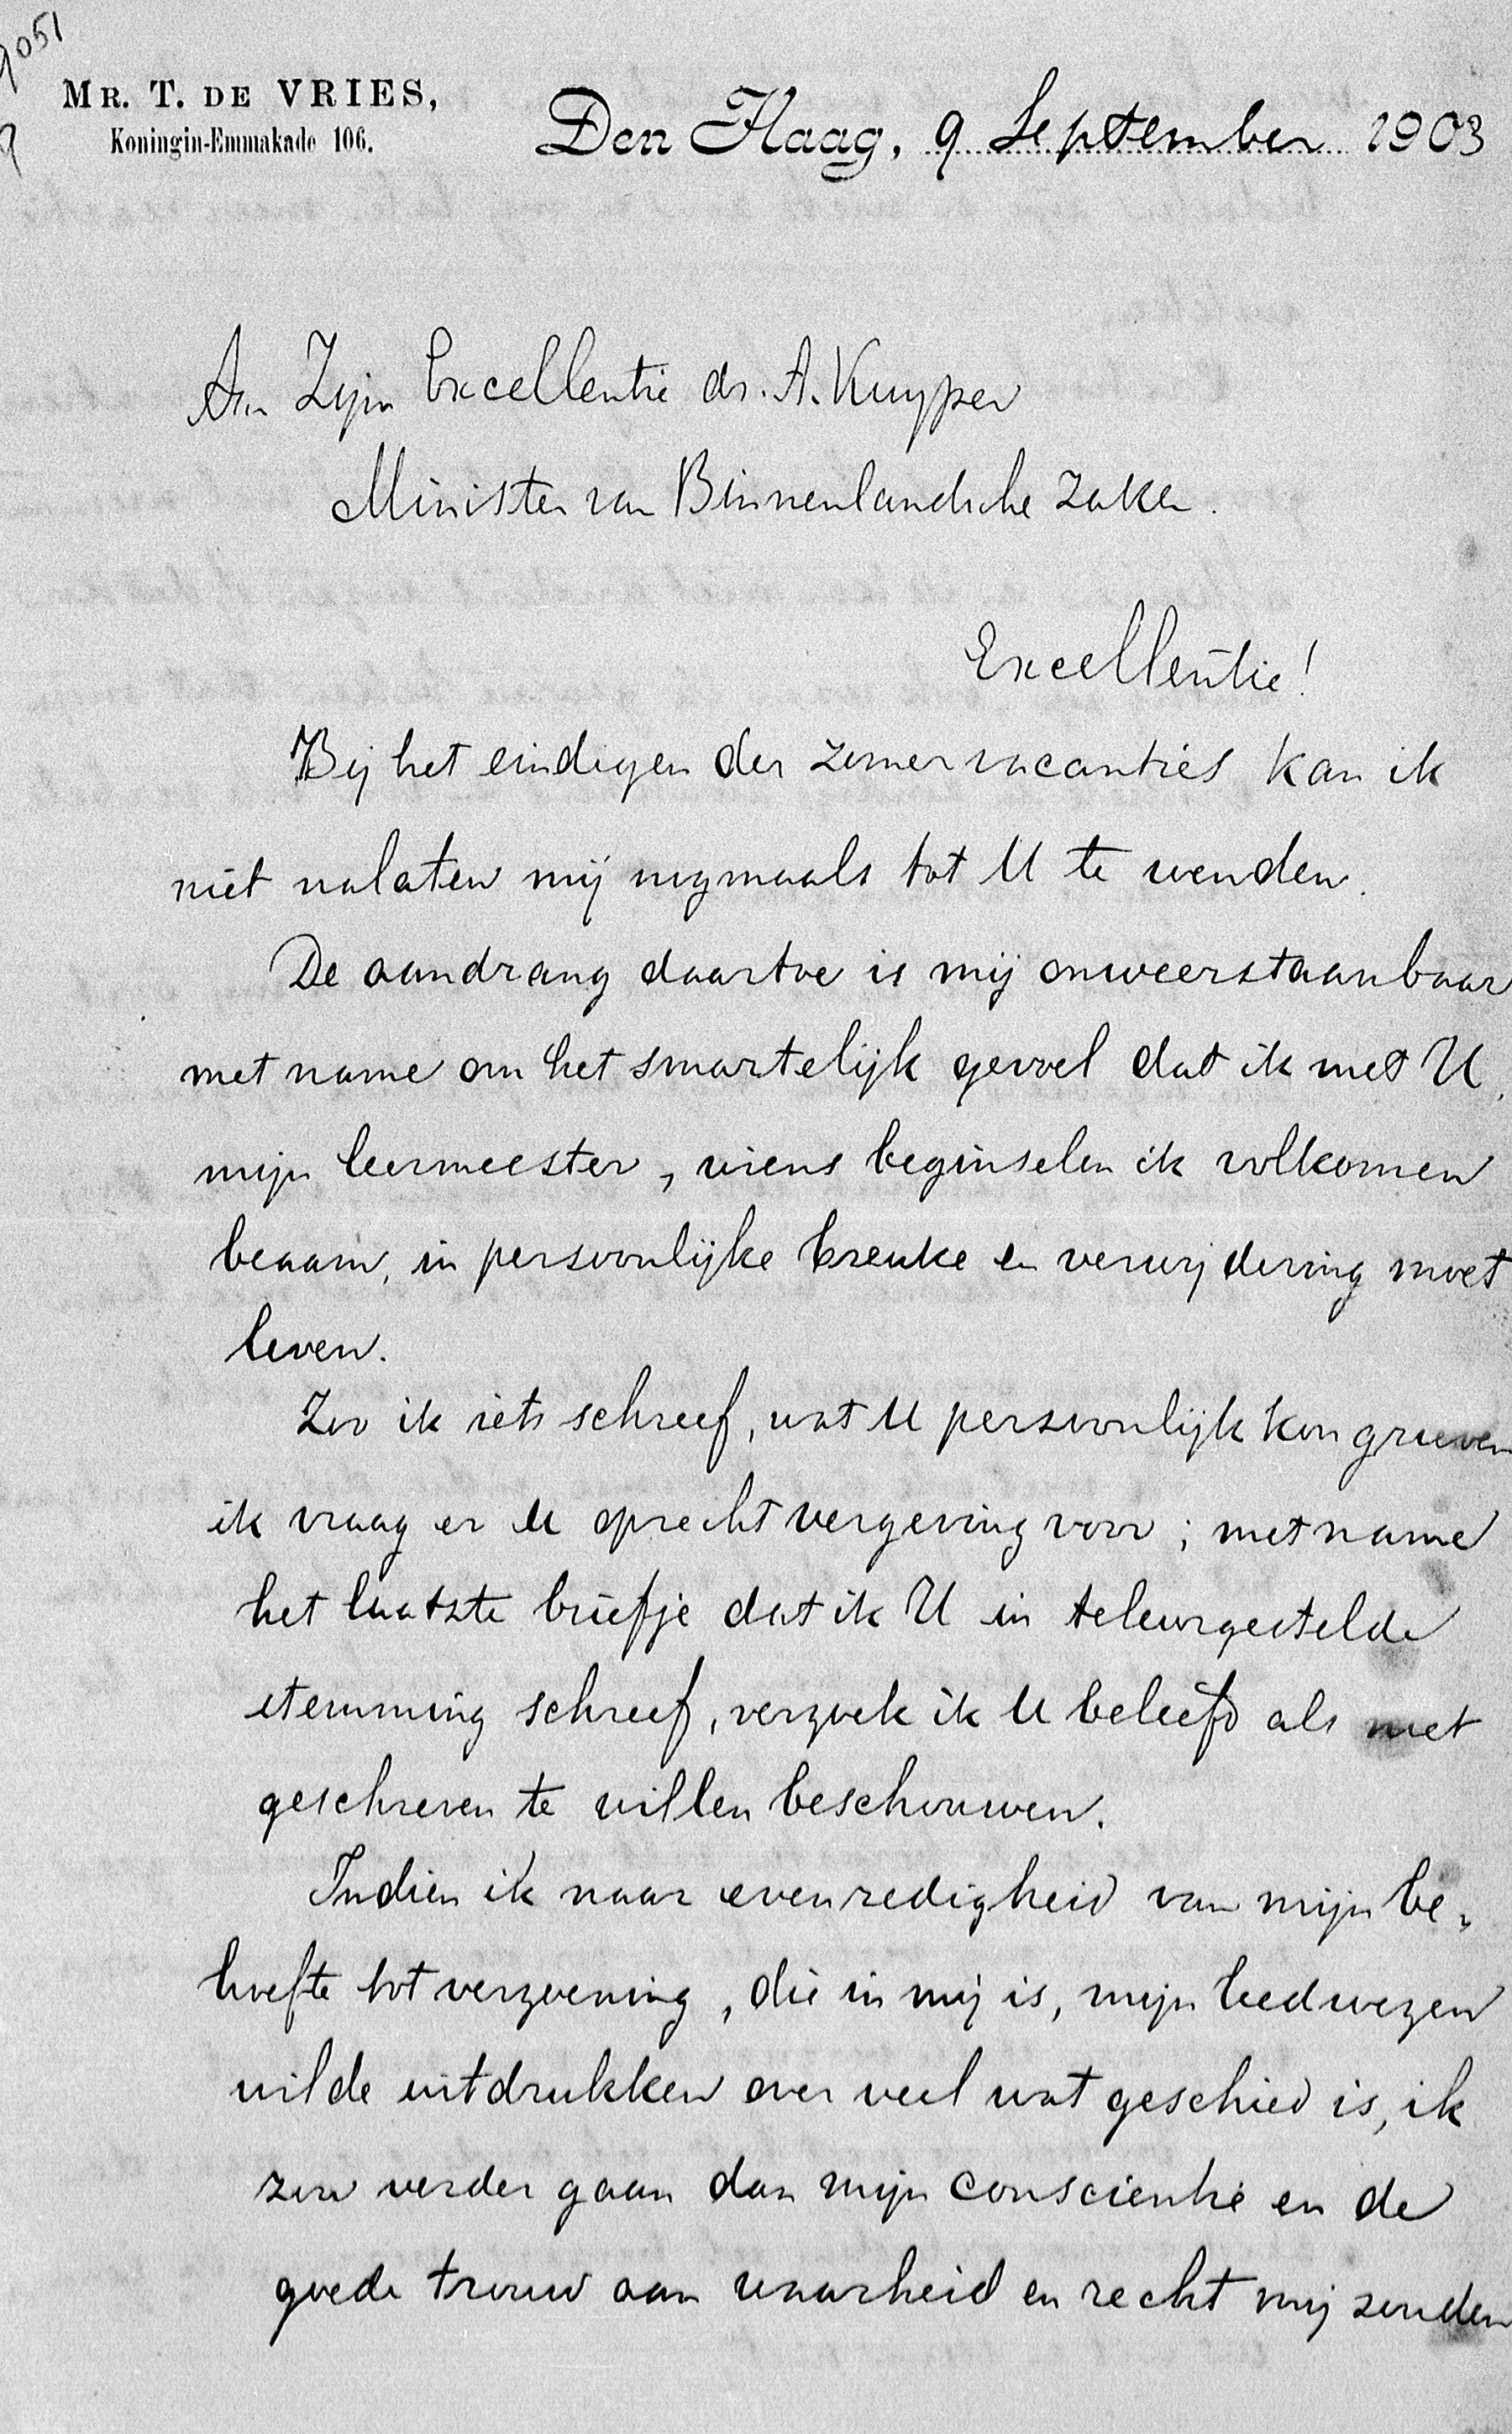 9051
MR. T. DE VRIES,
Koningin-Emmakade 106.
Den Haag, 9 September 1903
Aan Zijn Excellentie dr. A. Kuyper
Minister van Binnenlandsche Zaken.
Excellentie!
Bij het eindigen der zomervacanties kan ik
niet nalaten mij nogmaals tot U te wenden.
De aandrang daartoe is mij onweerstaanbaar
met name om het smartelijk gevoel dat ik met U,
mijn leermeester, wiens beginselen ik volkomen
beaam, in persoonlijke breuke en verwijdering moet
leven.
Zoo ik iets schreef, wat U persoonlijk kon grieven
ik vraag er U oprecht vergeving voor; met name
het laatste briefje dat ik U in teleurgestelde
stemming schreef, verzoek ik U beleefd als niet
geschreven te willen beschouwen.
Indien ik naar evenredigheid van mijn be-
hoefte tot verzoening, die in mij is, mijn leedwezen
wilde uitdrukken over veel wat geschied is, ik
zou verder gaan dan mijn conscientie en de
goede trouw aan waarheid en recht mij zouden